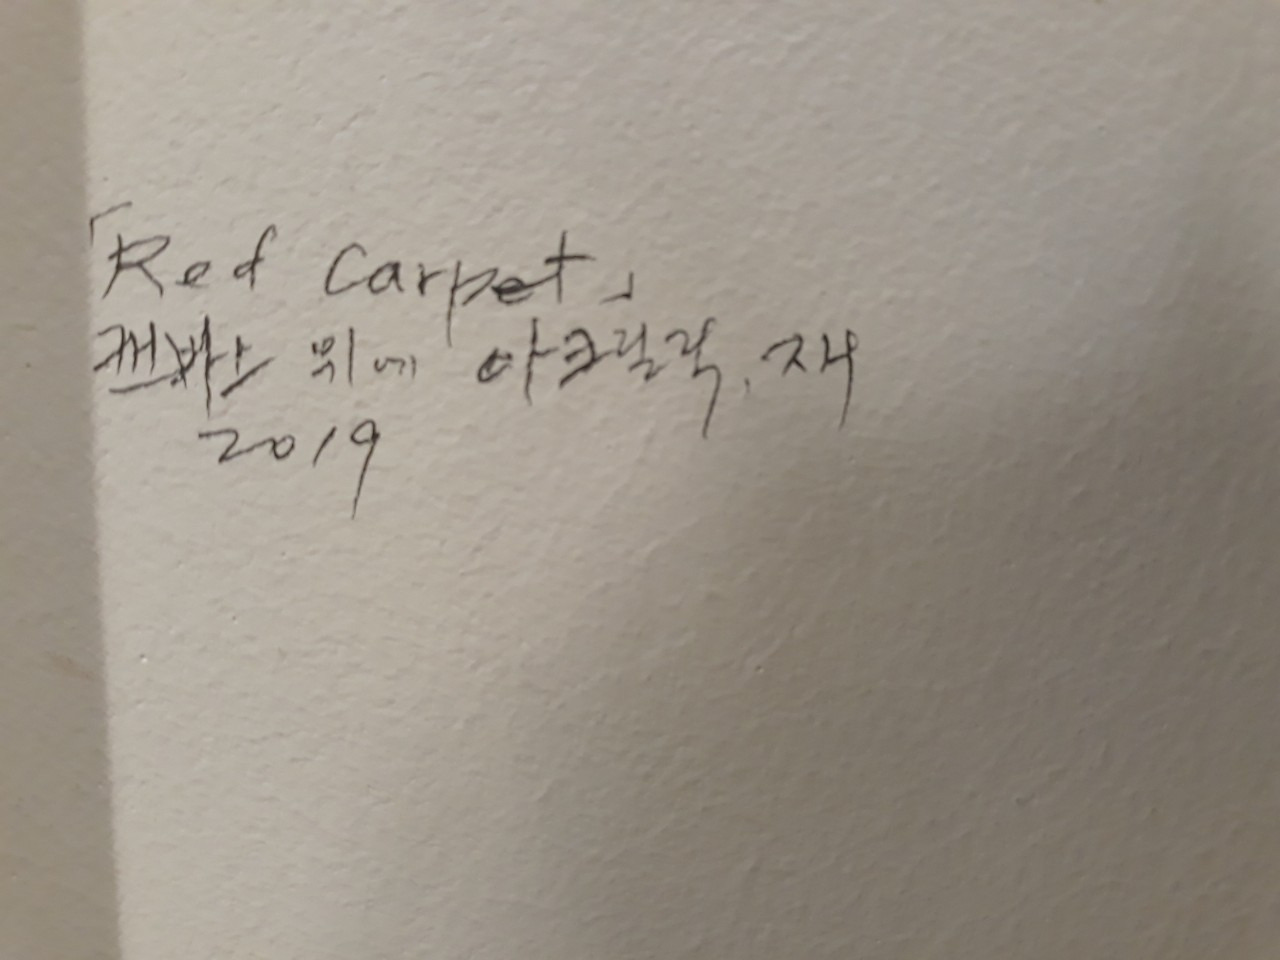 「Red Carpet」
캔바스 위에 아크릴릭, 재
2019